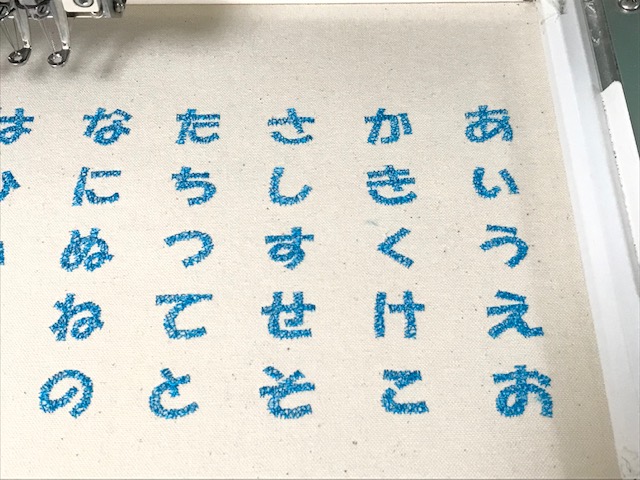 あいうえお
かきくけこ
さしすせそ
たちつてと
なにぬねの
は